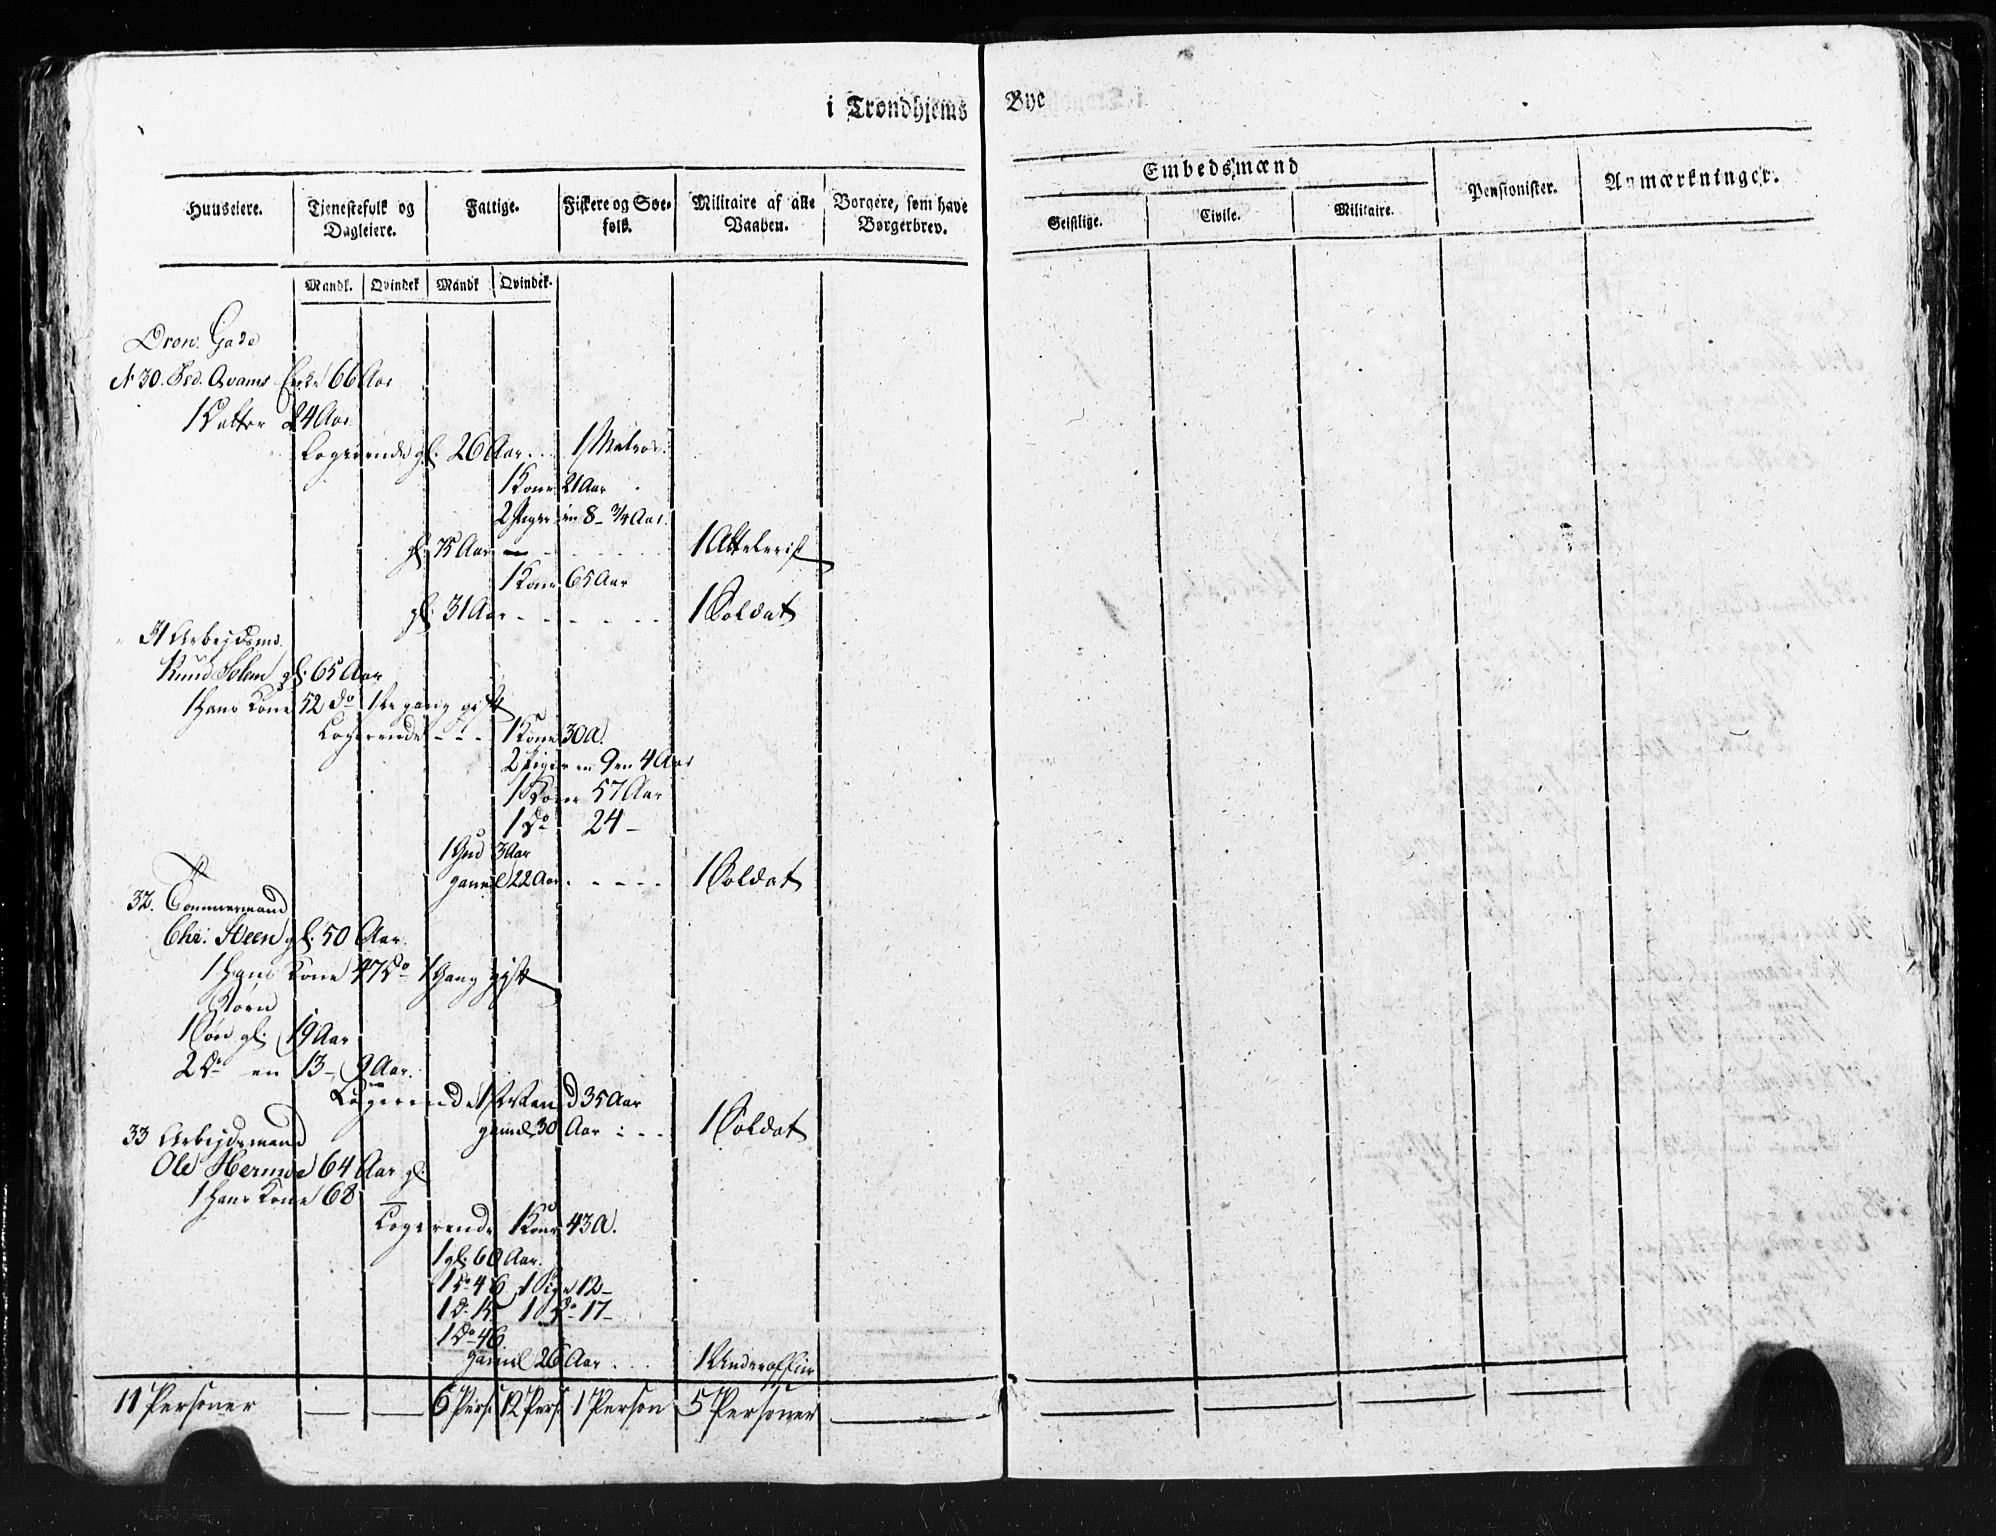 i Trondhjems Bye
Huuseiere.
Tienestefolk og Dagleiere.
Fattige.
Fiskere og Søefolk.
Militaire af alle Vaaben.
Borgere, som have Borgerbrev.
Embedsmænd
Geistlige.
Civile.
Militaire.
Pensionister.
Anmærkninger.
Mandk. Qvindek Mandk Qvindek.
Dron. Gade
N 30. Qvams Enke 66 Aar
1 Datter 24 Aar
Logerende gl. 26 Aar. . . 1 Matros.
1 Kone 21 Aar
2 Piger en 8 - 3/4 Aar.
gl. 75 Aar - - - - - 1 Attelerist
1 Kone 65 Aar
gl. 31 Aar - - - - - - 1 Soldat
31 Arbejdsmd.
Knud Solem gl. 65 Aar
1 Hans Kone 52 do 1te gang gift
Logerende - - - 1 Kone 30 A.
2 Piger en 9 en 4 Aar
1 Kone 57 Aar
1 do 24 -
1 3 Aar
gamel 22 Aar. - - - - 1 Soldat
32. Tommermand
Chr. Steen gl. 50 Aar.
1 Hans Kone 47 Do 1 Gang gift
Børn
1 Søn gl. 19 Aar
2 do en 13 - 9 Aar.
Logerende 1 35 Aar
gamel 30 Aar - - - 1 Soldat
33 Arbejdsmand
Ole Hermoe 64 Aar gl.
1 Hans Kone 68
Logerende 1 Kone 43 A.
1 gl. 60 Aar.
1 do 46 1 Pige 12 -
1 d. 15 1 Do 17 -
1 Do 46
gamel 26 Aar . . . 1 Underofficier
11 Personer — — 6 Pers 12 Pers 1 Person 5 Personer — — — — — —